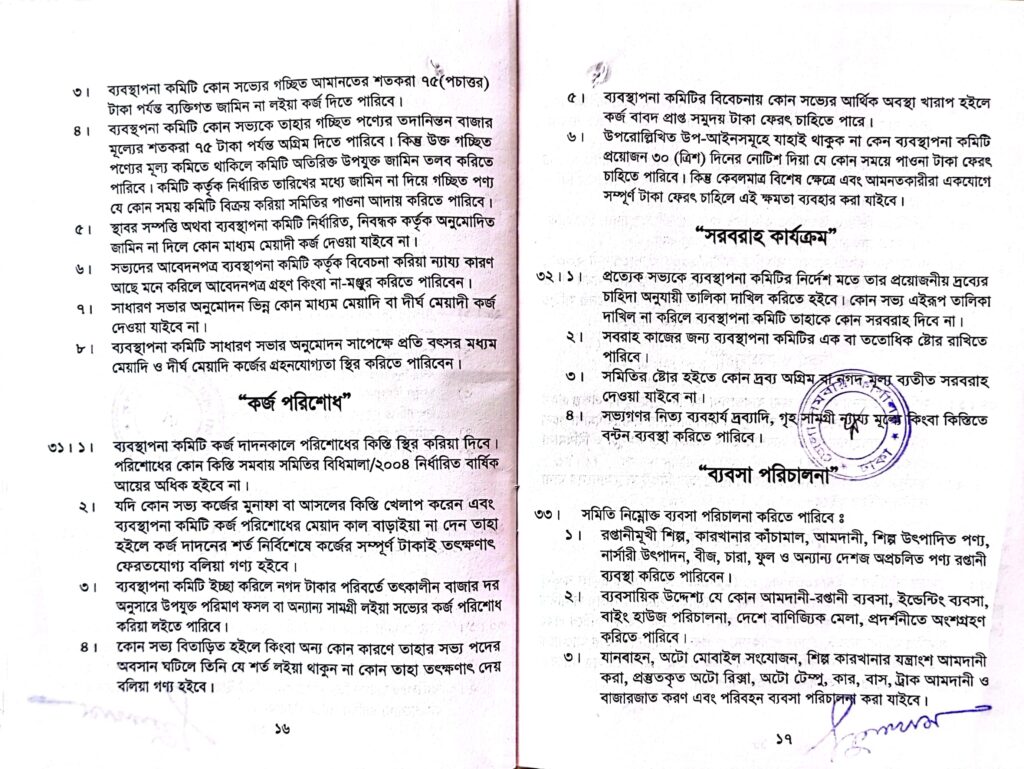 ৩। ব্যবস্থাপনা কমিটি কোন সভ্যের গচ্ছিত আমানতের শতকরা ৭৫(পচাত্তর)
টাকা পর্যন্ত ব্যক্তিগত জামিন না লইয়া কর্জ দিতে পারিবে।
৪। ব্যবস্থপনা কমিটি কোন সভ্যকে তাহার গচ্ছিত পণ্যের তদানিন্তন বাজার
মূল্যের শতকরা ৭৫ টাকা পর্যন্ত অগ্রিম দিতে পারিবে। কিন্তু উক্ত গচ্ছিত
পণ্যের মূল্য কমিতে থাকিলে কমিটি অতিরিক্ত উপযুক্ত জামিন তলব করিতে
পারিবে। কমিটি কর্তৃক নির্ধারিত তারিখের মধ্যে জামিন না দিয়ে গচ্ছিত পণ্য
যে কোন সময় কমিটি বিক্রয় করিয়া সমিতির পাওনা আদায় করিতে পারিবে।
৫। স্থাবর সম্পত্তি অথবা ব্যবস্থাপনা কমিটি নির্ধারিত, নিবন্ধক কর্তৃক অনুমোদিত
জামিন না দিলে কোন মাধ্যম মেয়াদী কর্জ দেওয়া যাইবে না।
৬। সভ্যদের আবেদনপত্র ব্যবস্থাপনা কমিটি কর্তৃক বিবেচনা করিয়া ন্যায্য কারণ
আছে মনে করিলে আবেদনপত্র গ্রহণ কিংবা না-মঞ্জুর করিতে পারিবেন।
৭। সাধারণ সভার অনুমোদন ভিন্ন কোন মাধ্যম মেয়াদি বা দীর্ঘ মেয়াদী কর্জ
দেওয়া যাইবে না।
৮। ব্যবস্থাপনা কমিটি সাধারণ সভার অনুমোদন সাপেক্ষে প্রতি বৎসর মধ্যম
মেয়াদি ও দীর্ঘ মেয়াদি কর্জের গ্রহনযোগ্যতা স্থির করিতে পারিবেন।
“কর্জ পরিশোধ”
৩১। ১। ব্যবস্থাপনা কমিটি কর্জ দাদনকালে পরিশোধের কিস্তি স্থির করিয়া দিবে।
পরিশোধের কোন কিস্তি সমবায় সমিতির বিধিমালা/২০০৪ নির্ধারিত বার্ষিক
আয়ের অধিক হইবে না।
২। যদি কোন সভ্য কর্জের মুনাফা বা আসলের কিস্তি খেলাপ করেন এবং
ব্যবস্থাপনা কমিটি কর্জ পরিশোধের মেয়াদ কাল বাড়াইয়া না দেন তাহা
হইলে কর্জ দাদনের শর্ত নির্বিশেষে কর্জের সম্পূর্ণ টাকাই তৎক্ষণাৎ
ফেরতযোগ্য বলিয়া গণ্য হইবে।
৩। ব্যবস্থাপনা কমিটি ইচ্ছা করিলে নগদ টাকার পরিবর্তে তৎকালীন বাজার দর
অনুসারে উপযুক্ত পরিমাণ ফসল বা অন্যান্য সামগ্রী লইয়া সভ্যের কর্জ পরিশোধ
করিয়া লইতে পারিবে।
৪। কোন সভ্য বিতাড়িত হইলে কিংবা অন্য কোন কারণে তাহার সভ্য পদের
অবসান ঘটিলে তিনি যে শর্ত লইয়া থাকুন না কোন তাহা তৎক্ষণাৎ দেয়
বলিয়া গণ্য হইবে।
১৬
৫। ব্যবস্থাপনা কমিটির বিবেচনায় কোন সভ্যের আর্থিক অবস্থা খারাপ হইলে
কর্জ বাবদ প্রাপ্ত সমুদয় টাকা ফেরৎ চাহিতে পারে।
৬। উপরোল্লিখিত উপ-আইনসমূহে যাহাই থাকুক না কেন ব্যবস্থাপনা কমিটি
প্রয়োজন ৩০ (ত্রিশ) দিনের নোটিশ দিয়া যে কোন সময়ে পাওনা টাকা ফেরৎ
চাহিতে পারিবে। কিন্তু কেবলমাত্র বিশেষ ক্ষেত্রে এবং আমনতকারীরা একযোগে
সম্পূর্ণ টাকা ফেরৎ চাহিলে এই ক্ষমতা ব্যবহার করা যাইবে।
“সরবরাহ কার্যক্রম”
৩২। ১। প্রত্যেক সভ্যকে ব্যবস্থাপনা কমিটির নির্দেশ মতে তার প্রয়োজনীয় দ্রব্যের
চাহিদা অনুযায়ী তালিকা দাখিল করিতে হইবে। কোন সভ্য এইরূপ তালিকা
দাখিল না করিলে ব্যবস্থাপনা কমিটি তাহাকে কোন সরবরাহ দিবে না।
২। সবরাহ কাজের জন্য ব্যবস্থাপনা কমিটির এক বা ততোধিক ষ্টোর রাখিতে
পারিবে।
৩। সমিতির ষ্টোর হইতে কোন দ্রব্য অগ্রিম বা নগদ মূল্য ব্যতীত সরবরাহ
দেওয়া যাইবে না।
৪। সভ্যগণর নিত্য ব্যবহার্য দ্রব্যাদি, গৃহ সামগ্রী ন্যায্য মূল্যে কিংবা কিস্তিতে
বন্টন ব্যবস্থা করিতে পারিবে।
“ব্যবসা পরিচালনা”
৩৩। সমিতি নিম্নোক্ত ব্যবসা পরিচালনা করিতে পারিবে ঃ
১। রপ্তানীমূখী শিল্প, কারখানার কাঁচামাল, আমদানী, শিল্প উৎপাদিত পণ্য,
নার্সারী উৎপাদন, বীজ, চারা, ফুল ও অন্যান্য দেশজ অপ্রচলিত পণ্য রপ্তানী
ব্যবস্থা করিতে পারিবেন।
২। ব্যবসায়িক উদ্দেশ্য যে কোন আমদানী-রপ্তানী ব্যবসা, ইন্ডেন্টিং ব্যবসা,
বাইং হাউজ পরিচালনা, দেশে বাণিজ্যিক মেলা, প্রদর্শনীতে অংশগ্রহণ
করিতে পারিবে।
৩। যানবাহন, অটো মোবাইল সংযোজন, শিল্প কারখানার যন্ত্রাংশ আমদানী
করা, প্রস্তুতকৃত অটো রিক্সা, অটো টেম্পু, কার, বাস, ট্রাক আমদানী ও
বাজারজাত করণ এবং পরিবহন ব্যবসা পরিচালনা করা যাইবে।
১৭